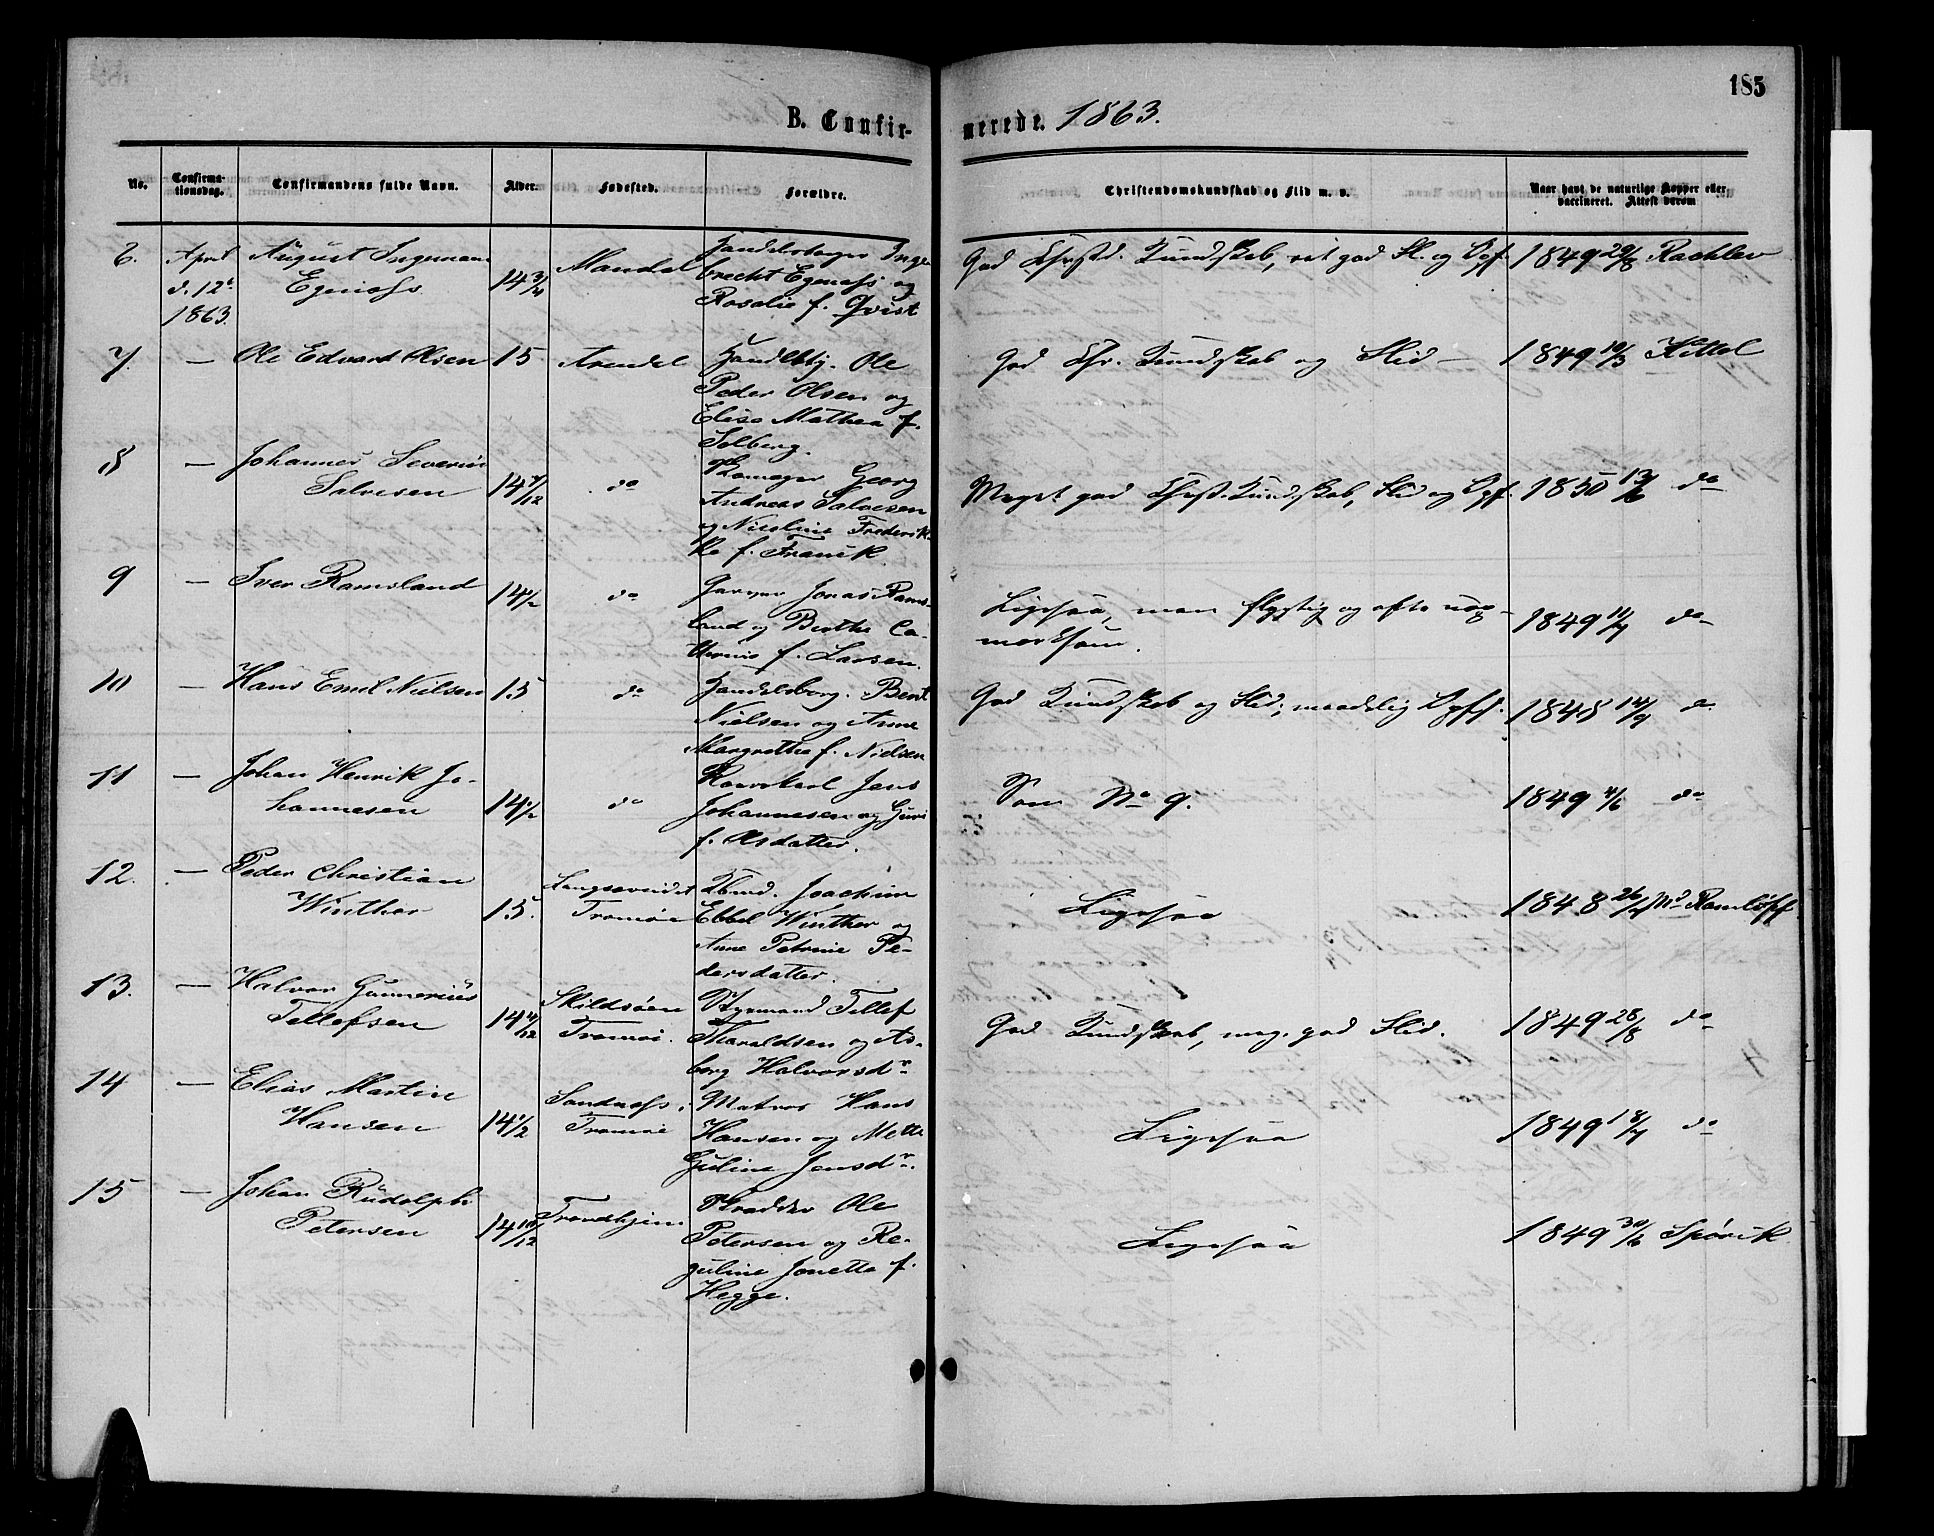 185
B. Confirmerede. 1863.
No. Confirmationsdag. Confirmandens fulde Navn. Alder. Fødested. Forældre. Christendomskundskab og Flid m. v. Naar havt de naturlige Kopper eller vaccineret. Attest derom
6. April d. 12te 1863. August Ingeman Egenæss 14 3/4 Mandal Handelsborger Ingebrecht Egenæss og Rosalie f. Qvist God Christd. Kundskab, ret god Fl. og Opf. 1849 29/8
7. — Ole Edvard Olsen 15 Arendal Handlbg. Ole Peder Olsen og Elise Mathea f. Solberg. God Chr. Kundskab og Flid — 1849 10/3 Kittel
8 — Johannes Severin Salvesen 14 7/12 do Georg Andreas Salvesen og Nicoline Frederikke f. Franck. Meget god Christ. Kundskab, Flid og Opf. 1850 13/6 do
9 — Iver Ramsland 14 1/2 do Garver Jonas Ramsland og Berthe Cathrine f. Larsen. Ligesaa, men flygtig og ofte uopmerksom. 1849 11/7 do
10 — Hans Emil Nielsen 15 do Handelsborg. Bent Nielsen og Anne Margrethe f. Nielsen God Kundskab og Flid, maadelig Opff. 1848 14/9 do
11 — Johan Henrik Johannesen 14 1/2 do Jens Johannesen og Guri f. Olsdatter. Som No 9. 1849 4/6 do
12. — Peder Christian Winther 15. Tromøe Joachim Ebbel Winther og Anne Petrine Pedersdatter. Ligesaa 1848 26/7 Md Ramløff
13. — Halvor Gunnerius Tellefsen 14 11/12 Skildsøen Tromøi. Styrmand Tellef Haraldsen og Asborg Halvorsdr. God Kundskab, meg. god Flid. 1849 28/8 do
14 — Elias Martin Hansen 14 1/2 Sandnæss, Tromøe Matros Hans Hansen og Mette Guline Jensdr. Ligesaa 1849 18/7 do
15 — Johan Rudolph Petersen 14 10/12 Trondhjem Skrædder Ole Petersen og Reguline Jonette f. Hegge. Ligesaa 1849 30/6 Spørck